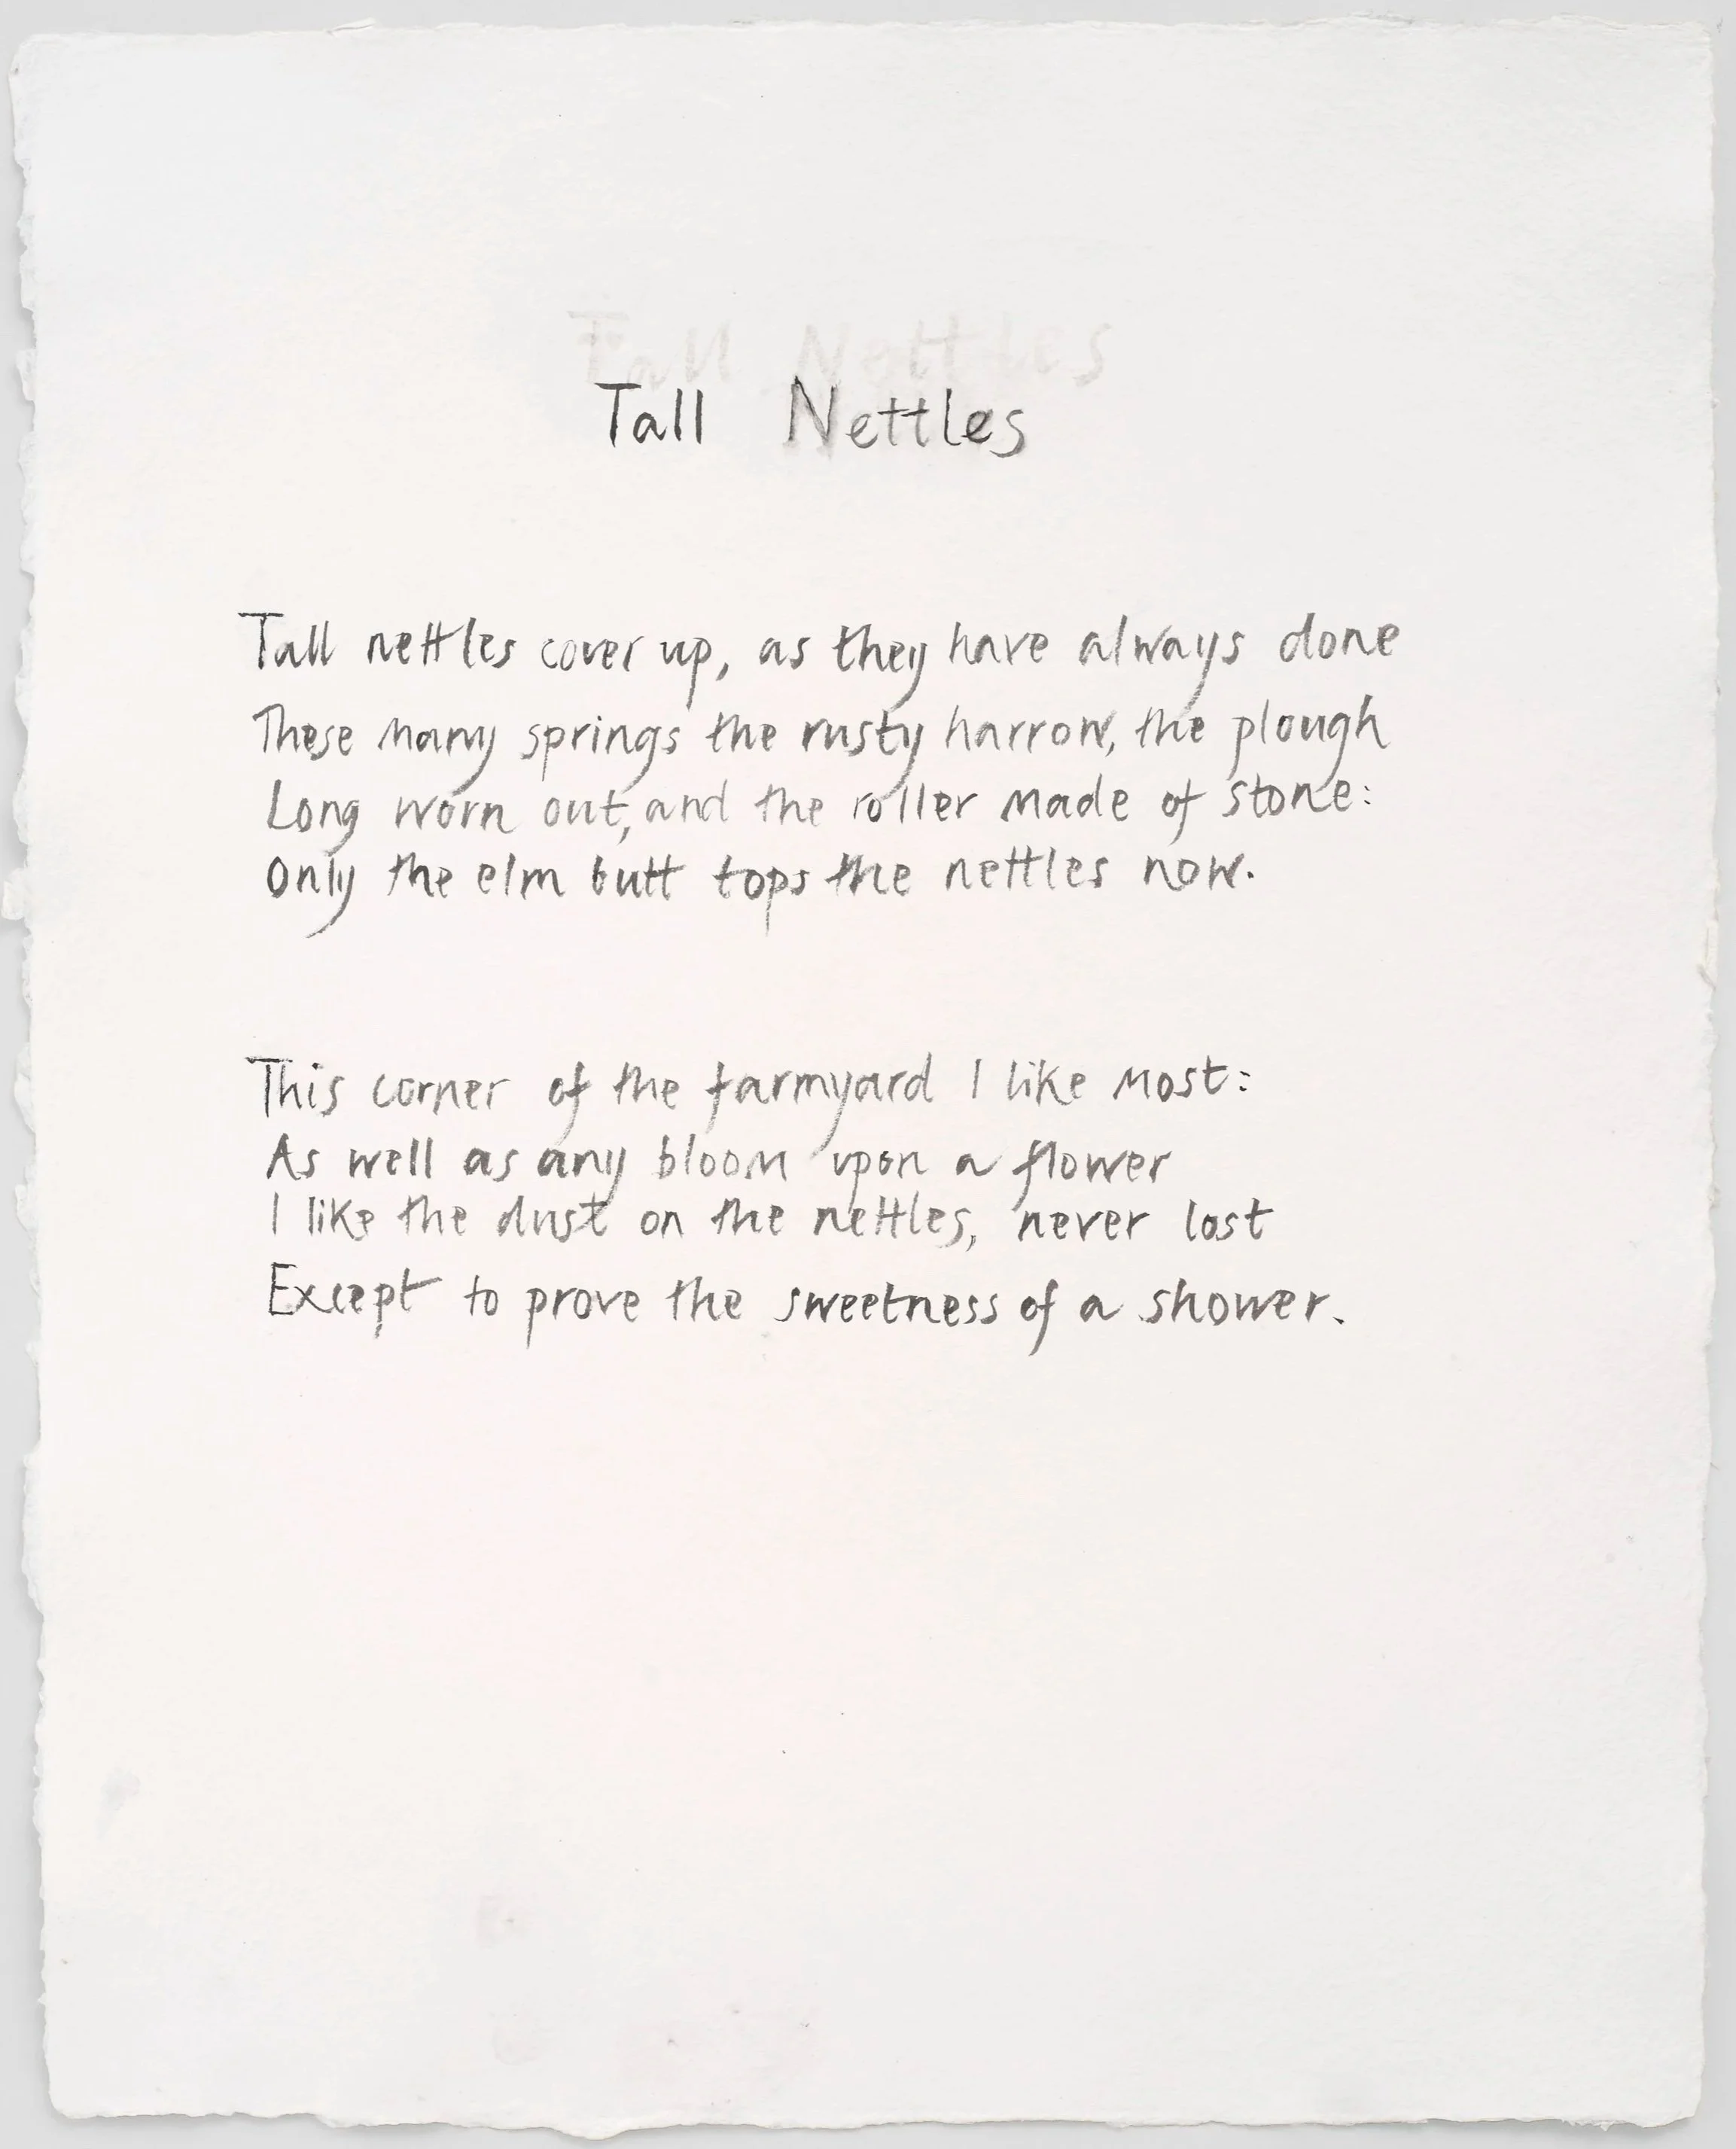 Tall Nettles
Tall Nettles
Tall nettles cover up, as they have always done
These many springs the rusty harrow, the plough
Long worn out, and the roller made of stone:
Only the elm butt tops the nettles now.
This corner of the farmyard I like most:
As well as any bloom upon a flower
I like the dust on the nettles, never lost
Except to prove the sweetness of a shower.